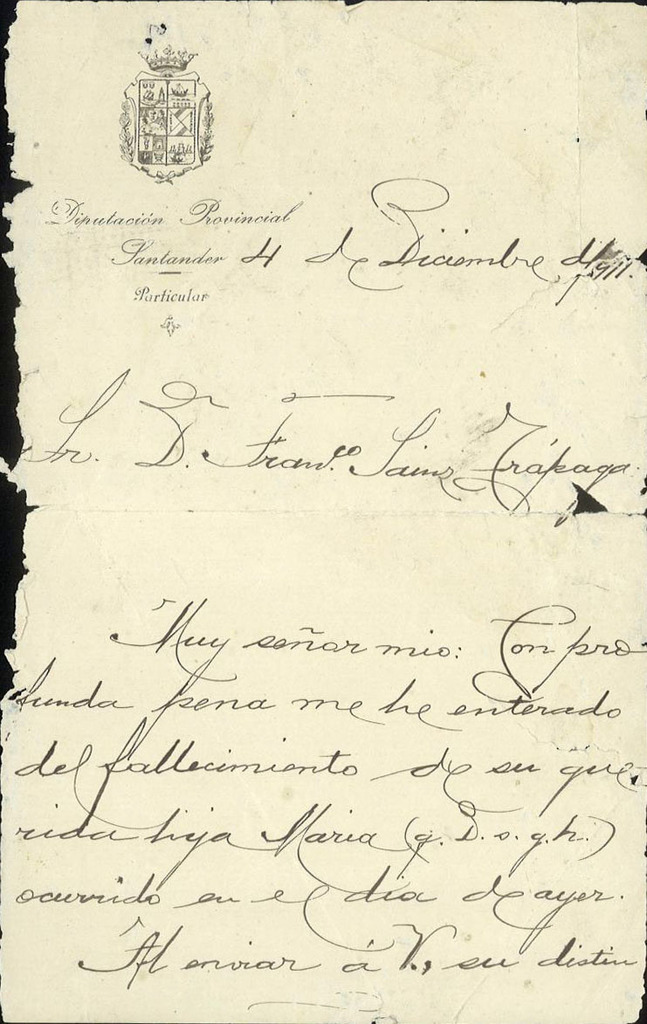 Diputación Provincial
Santander 4 de Diciembre de 1911.
Particular
Sr. D. Franco. Sainz Trápaga.
Muy señor mio: Con pro
funda pena me he enterado
del fallecimiento de su que
rida hija Maria (q. D. s. g. h.)
ocurrido en el dia de ayer.
Al enviar á V., su distin